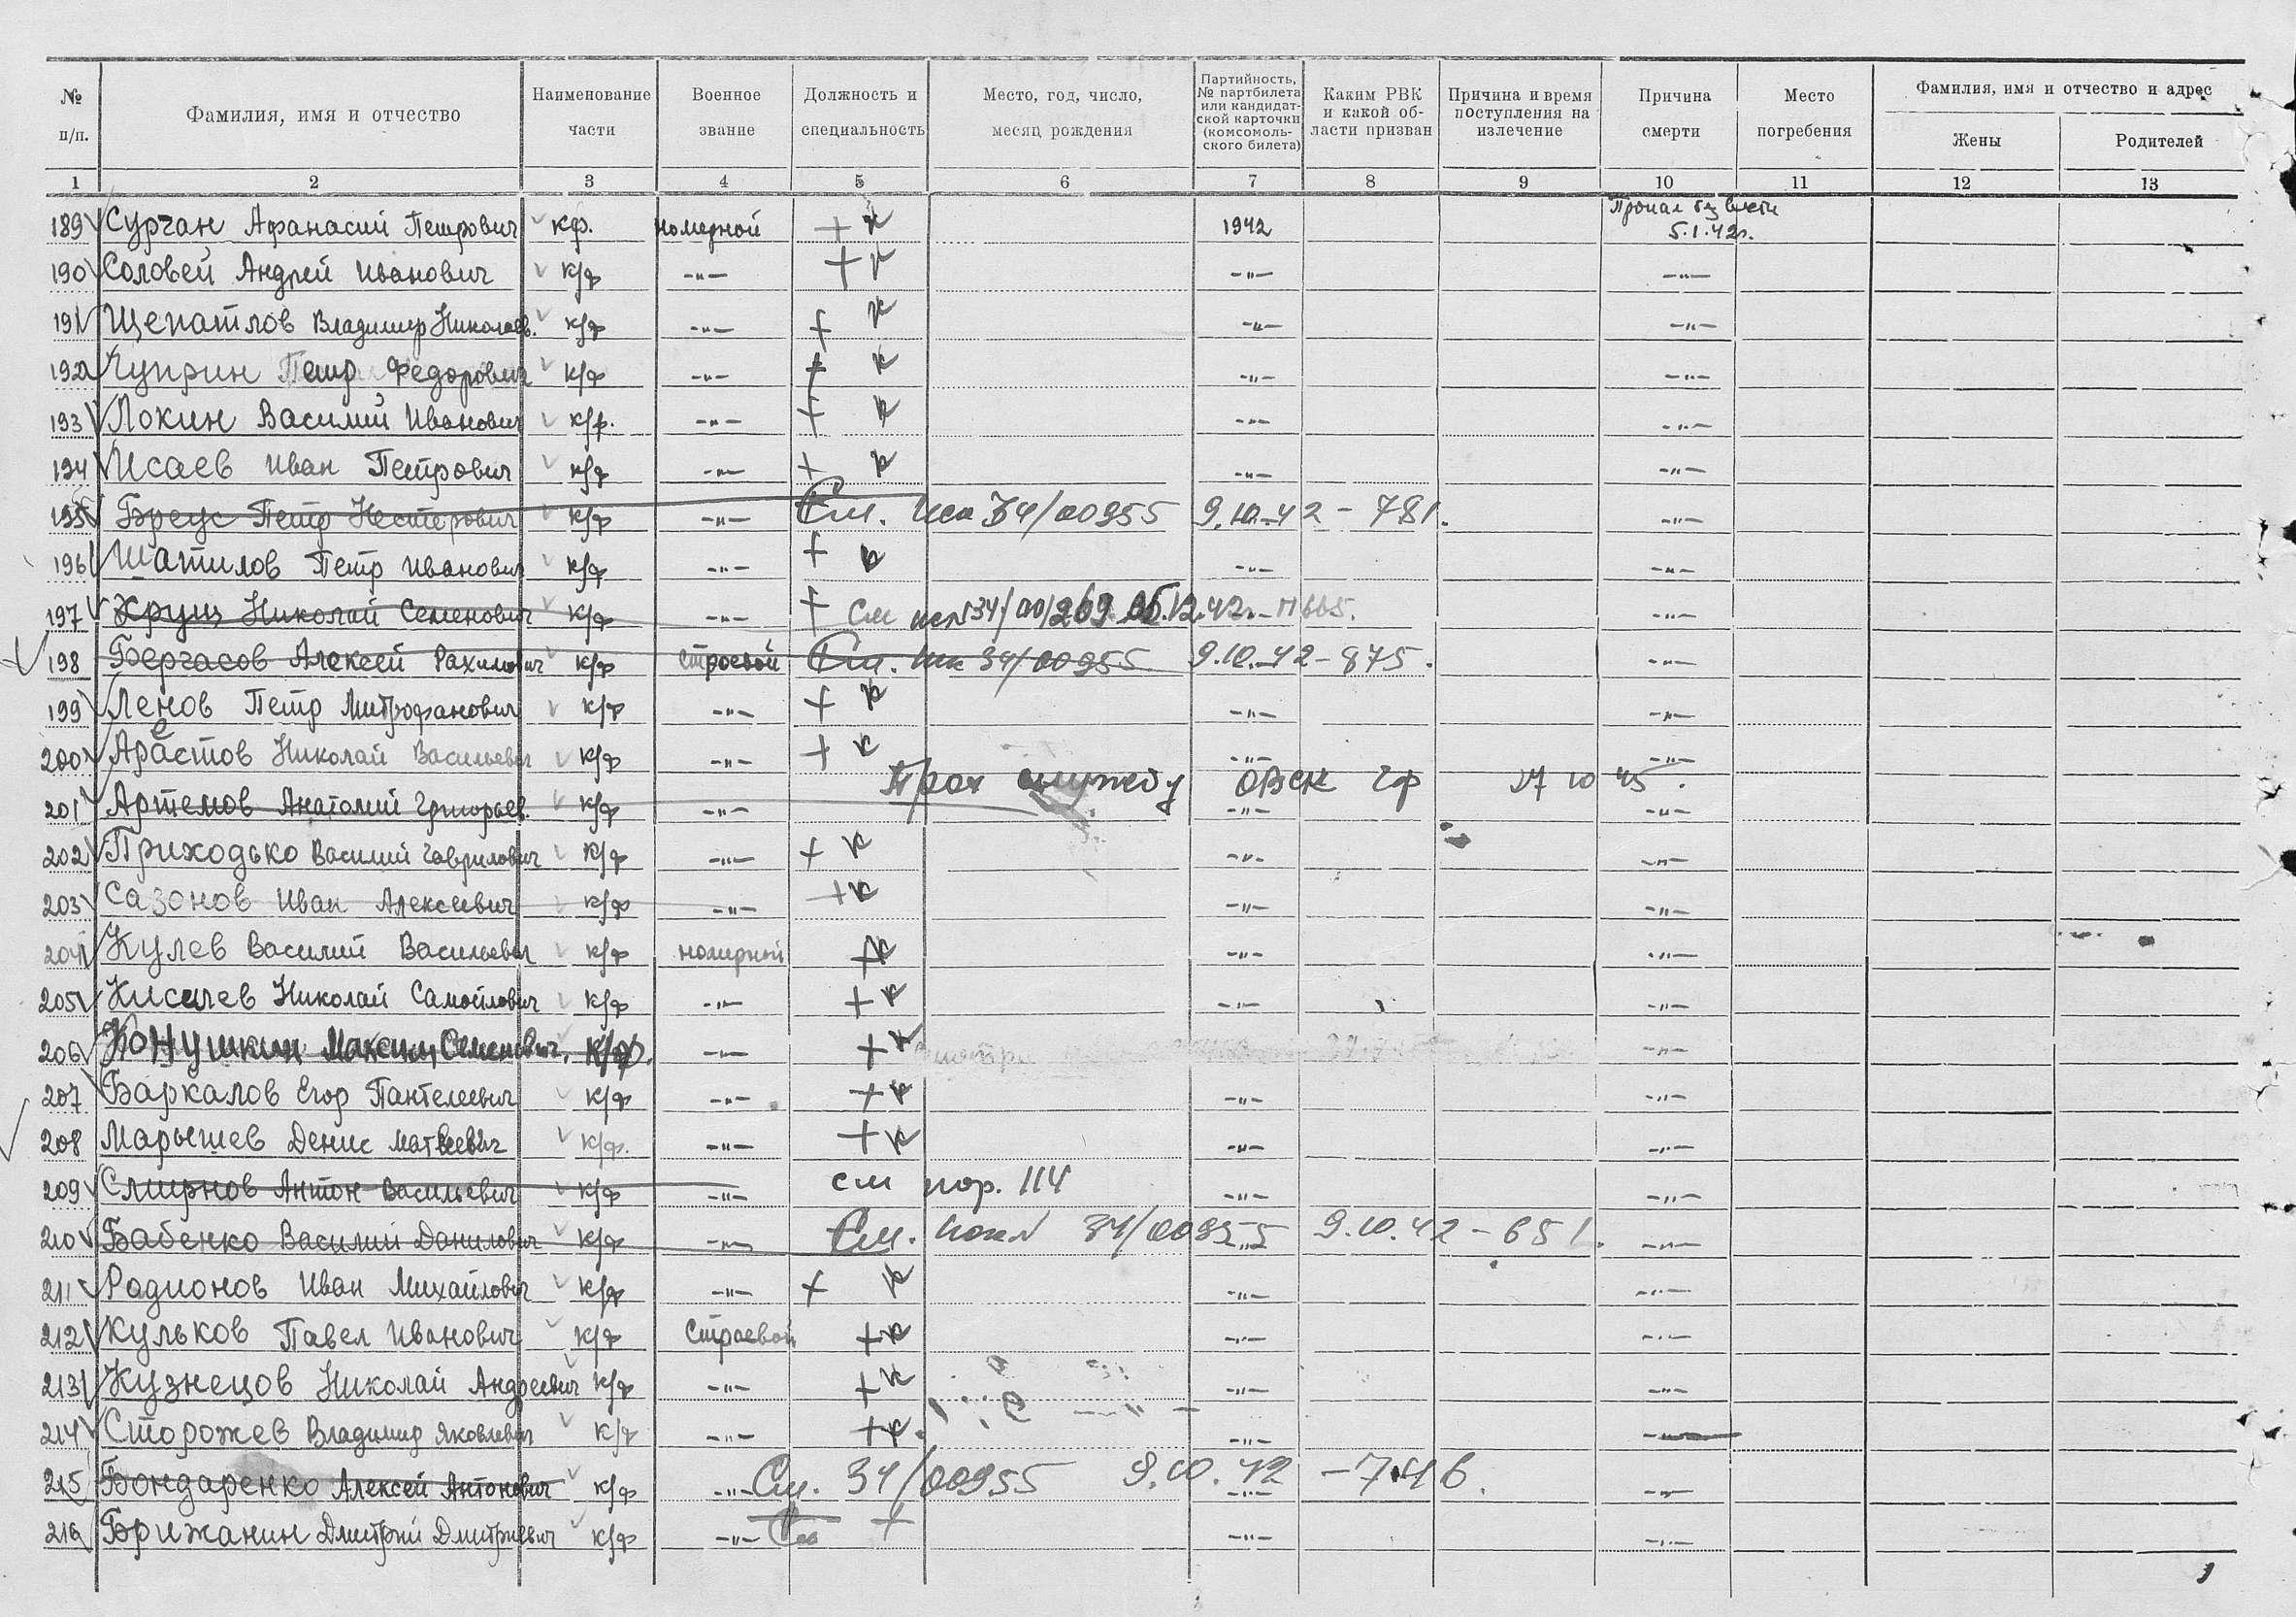 № п/п. Фамилия, имя и отчество Наименование части Военное звание Должность и специальность Место, год, число, месяц рождения Партийность, № партбилета или кандидатской карточки (комсомольского билета) Каким РВК и какой области призван Причина и время поступления на излечение Причина смерти Место погребения Фамилия, имя и отчество и адрес Жены Родителей
1 2 3 4 5 6 7 8 9 10 11 12 13
189 Сурган Афанасий Петрович кф. номерной + к 1942 Пропал без вести 5.1.42г.
190 Соловей Андрей Иванович к/ф -"- + к -"- -"-
191 Щепатлов Владимир Николаев. к/ф -"- + к -"- -"-
192 Чуприн Петр Федорович к/ф -"- + к -"- -"-
193 Локин Василий Иванович к/ф. -"- + к -"- -"-
194 Исаев Иван Петрович к/ф -"- + к -"- -"-
195 Бреус Петр Нестерович к/ф -"- См. 34/00955 9.10.42 - 781. -"-
196 Шатилов Петр Иванович к/ф -"- + к -"- -"-
197 Хрущ Николай Семенович к/ф -"- + См -"-
198 Бергасов Алексей Рахимович к/ф строевой См. 34/00955 9.10.42 - 875. -"-
199 Ленов Петр Митрофанович к/ф -"- + к -"- -"-
200 Арестов Николай Васильевич к/ф -"- + к -"- -"-
201 Артемов Анатолий Григорьев. к/ф -"- службу 27 10 45. -"- -"-
202 Приходько Василий Гаврилович к/ф -"- + к -"- -"-
203 Сазонов Иван Алексеевич к/ф -"- + к -"- -"-
204 Кулев Василий Васильевич к/ф номерной + к -"- -"-
205 Кисилев Николай Самойлович к/ф -"- + к -"- -"-
206 Конушкин Максим Семенович. к/ф. -"- + к -"-
207 Баркалов Егор Пантелеевич к/ф -"- + к -"- -"-
208 Марышев Денис Матвеевич к/ф. -"- + к -"- -"-
209 Смирнов Антон Васильевич к/ф -"- см пор. 114 -"- -"-
210 Бабенко Василий Данилович к/ф -"- См. 34/00955 9.10.42 - 651. -"-
211 Радионов Иван Михайлович к/ф -"- + к -"- -"-
212 Кульков Павел Иванович к/ф Строевой + к -"- -"-
213 Кузнецов Николай Андреевич к/ф -"- + к -"- -"-
214 Сторожев Владимир Яковлевич к/ф -"- + к. -"- -"-
215 Бондаренко Алексей Антонович к/ф -"- См. 34/00955 9.10.42 - 746. -"- -"-
216 Брижанин Дмитрий Дмитриевич к/ф -"- + -"- -"-